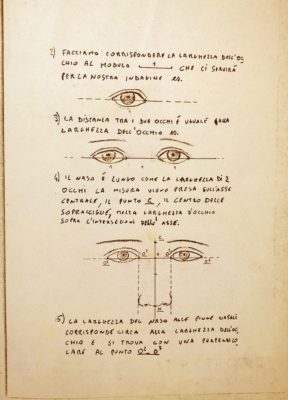 2) FACCIAMO CORRISPONDERE LA LARGHEZZA DELL'OC-
CHIO AL MODULO 1 CHE CI SERVIRÀ
PER LA NOSTRA INDAGINE es.
3) LA DISTANZA TRA I DUE OCCHI É UGUALE ALLA
LARGHEZZA DELL'OCCHIO es.
1 1 1
4) IL NASO É LUNGO COME LA LARGHEZZA DI 2
OCCHI LA MISURA VIENE PRESA SULL'ASSE
CENTRALE, IL PUNTO C, IL CENTRO DELLE
SOPRACCIGLIE, MEZZA LARGHEZZA D'OCCHIO
SOPRA L'INTERSEZIONE DELL'ASSE.
C
5) LA LARGHEZZA DEL NASO ALLE PINNE NASALI
CORRISPONDE CIRCA ALLA LARGHEZZA DELL'OC-
CHIO E SI TROVA CON UNA PERPENDICO
LARE AL PUNTO